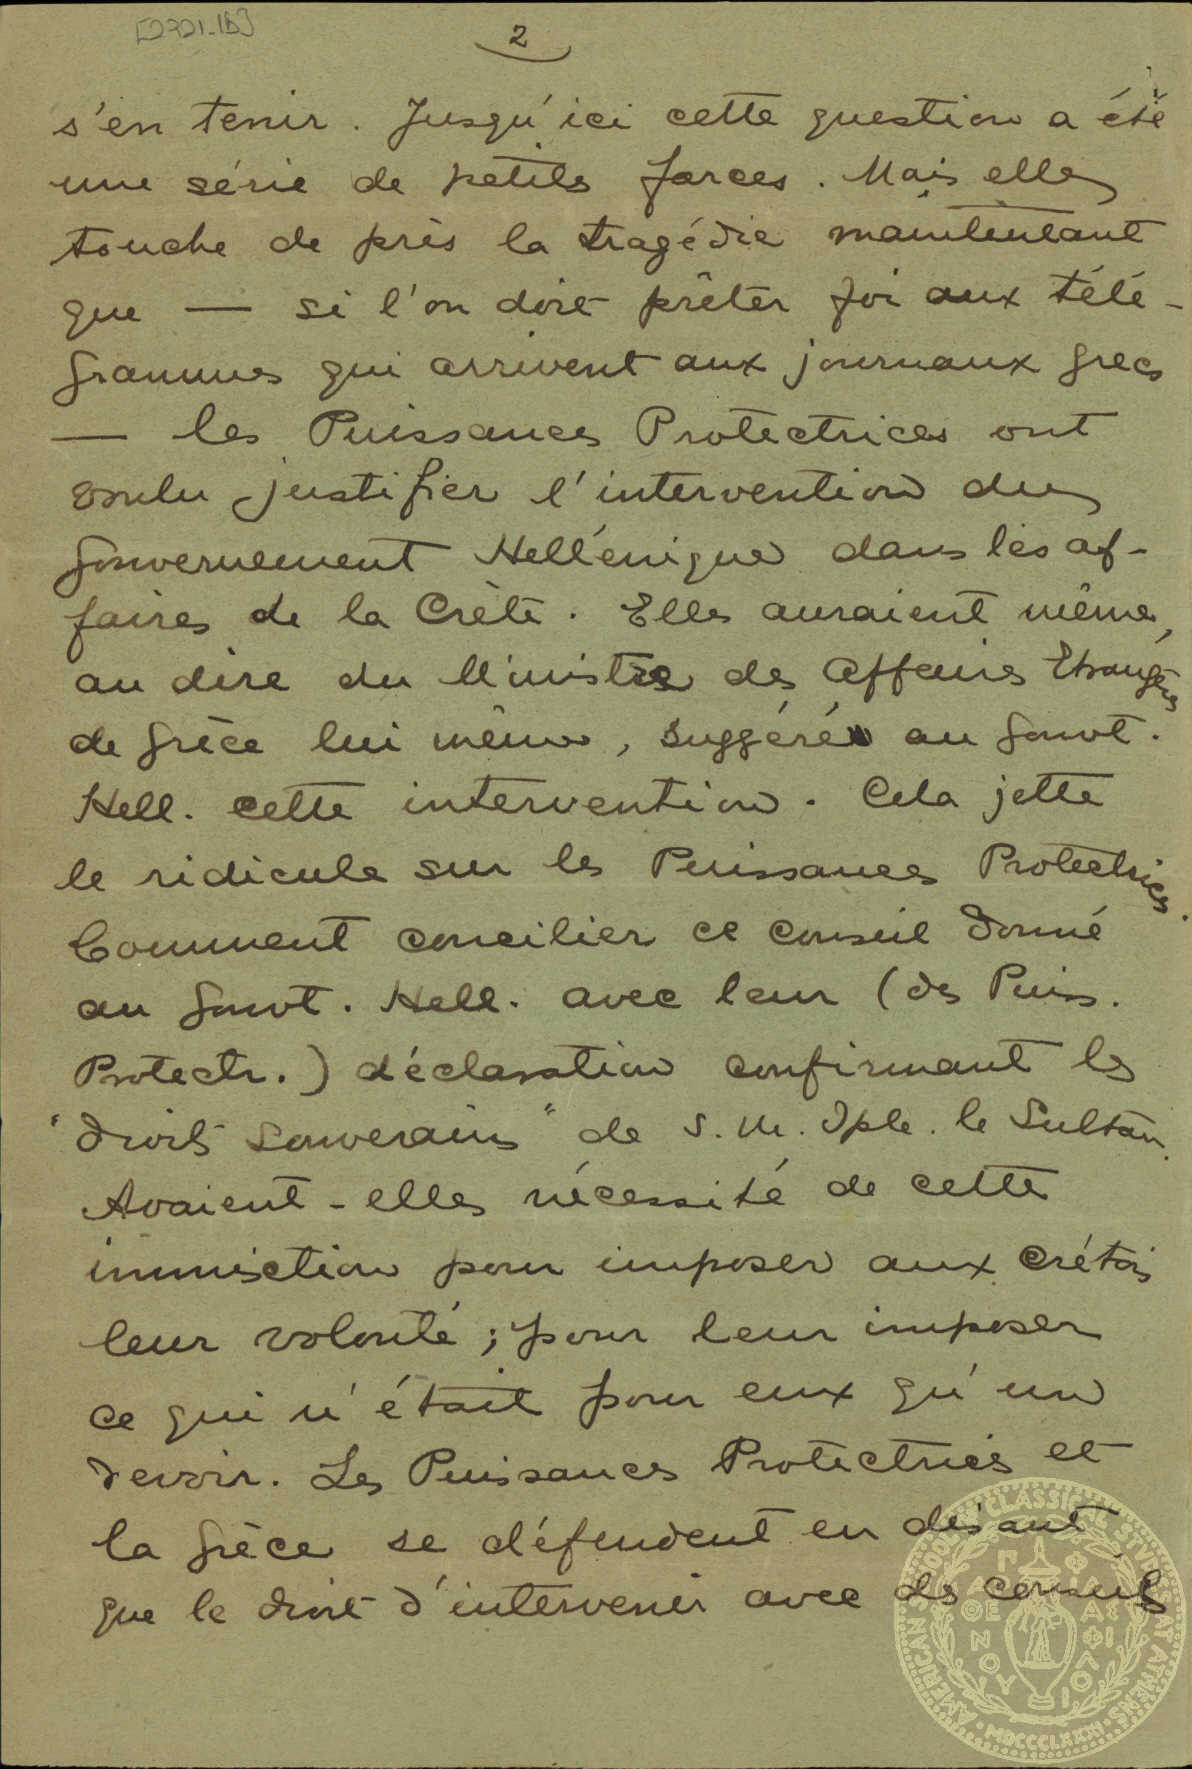 [2721-1B]
2
s'en tenir. Jusqu'ici cette question a été
une série de petits farces. Mais elle
touche de près la tragédie maintenant
que — si l'on doit prêter foi aux télé-
grammes qui arrivent aux journaux grecs
— les Puissances Protectrices ont
voulu justifier l'intervention du
Gouvernement Hellénique dans les af-
faires de la Crète. Elles auraient même,
au dire du Ministre des Affaires Etrangères
de Grèce lui même, suggéré au Gouvt.
Hell. cette intervention. Cela jette
le ridicule sur les Puissances Protectrices.
Comment concilier ce conseil donné
au Gouvt. Hell. avec leur (des Puiss.
Protectr.) déclaration confirmant les
"droits souverains" de S. M. Iple. le Sultan.
Avaient-elles nécessité de cette
immisction pour imposer aux Crétois
leur volonté; pour leur imposer
ce qui n'était pour eux qu'un
devoir. Les Puissances Protectrices et
la Grèce se défendent en disant
que le droit d'intervenir avec des conseils
AMERICAN SCHOOL OF CLASSICAL STVDIES AT ATHENS
MDCCCLXXXI